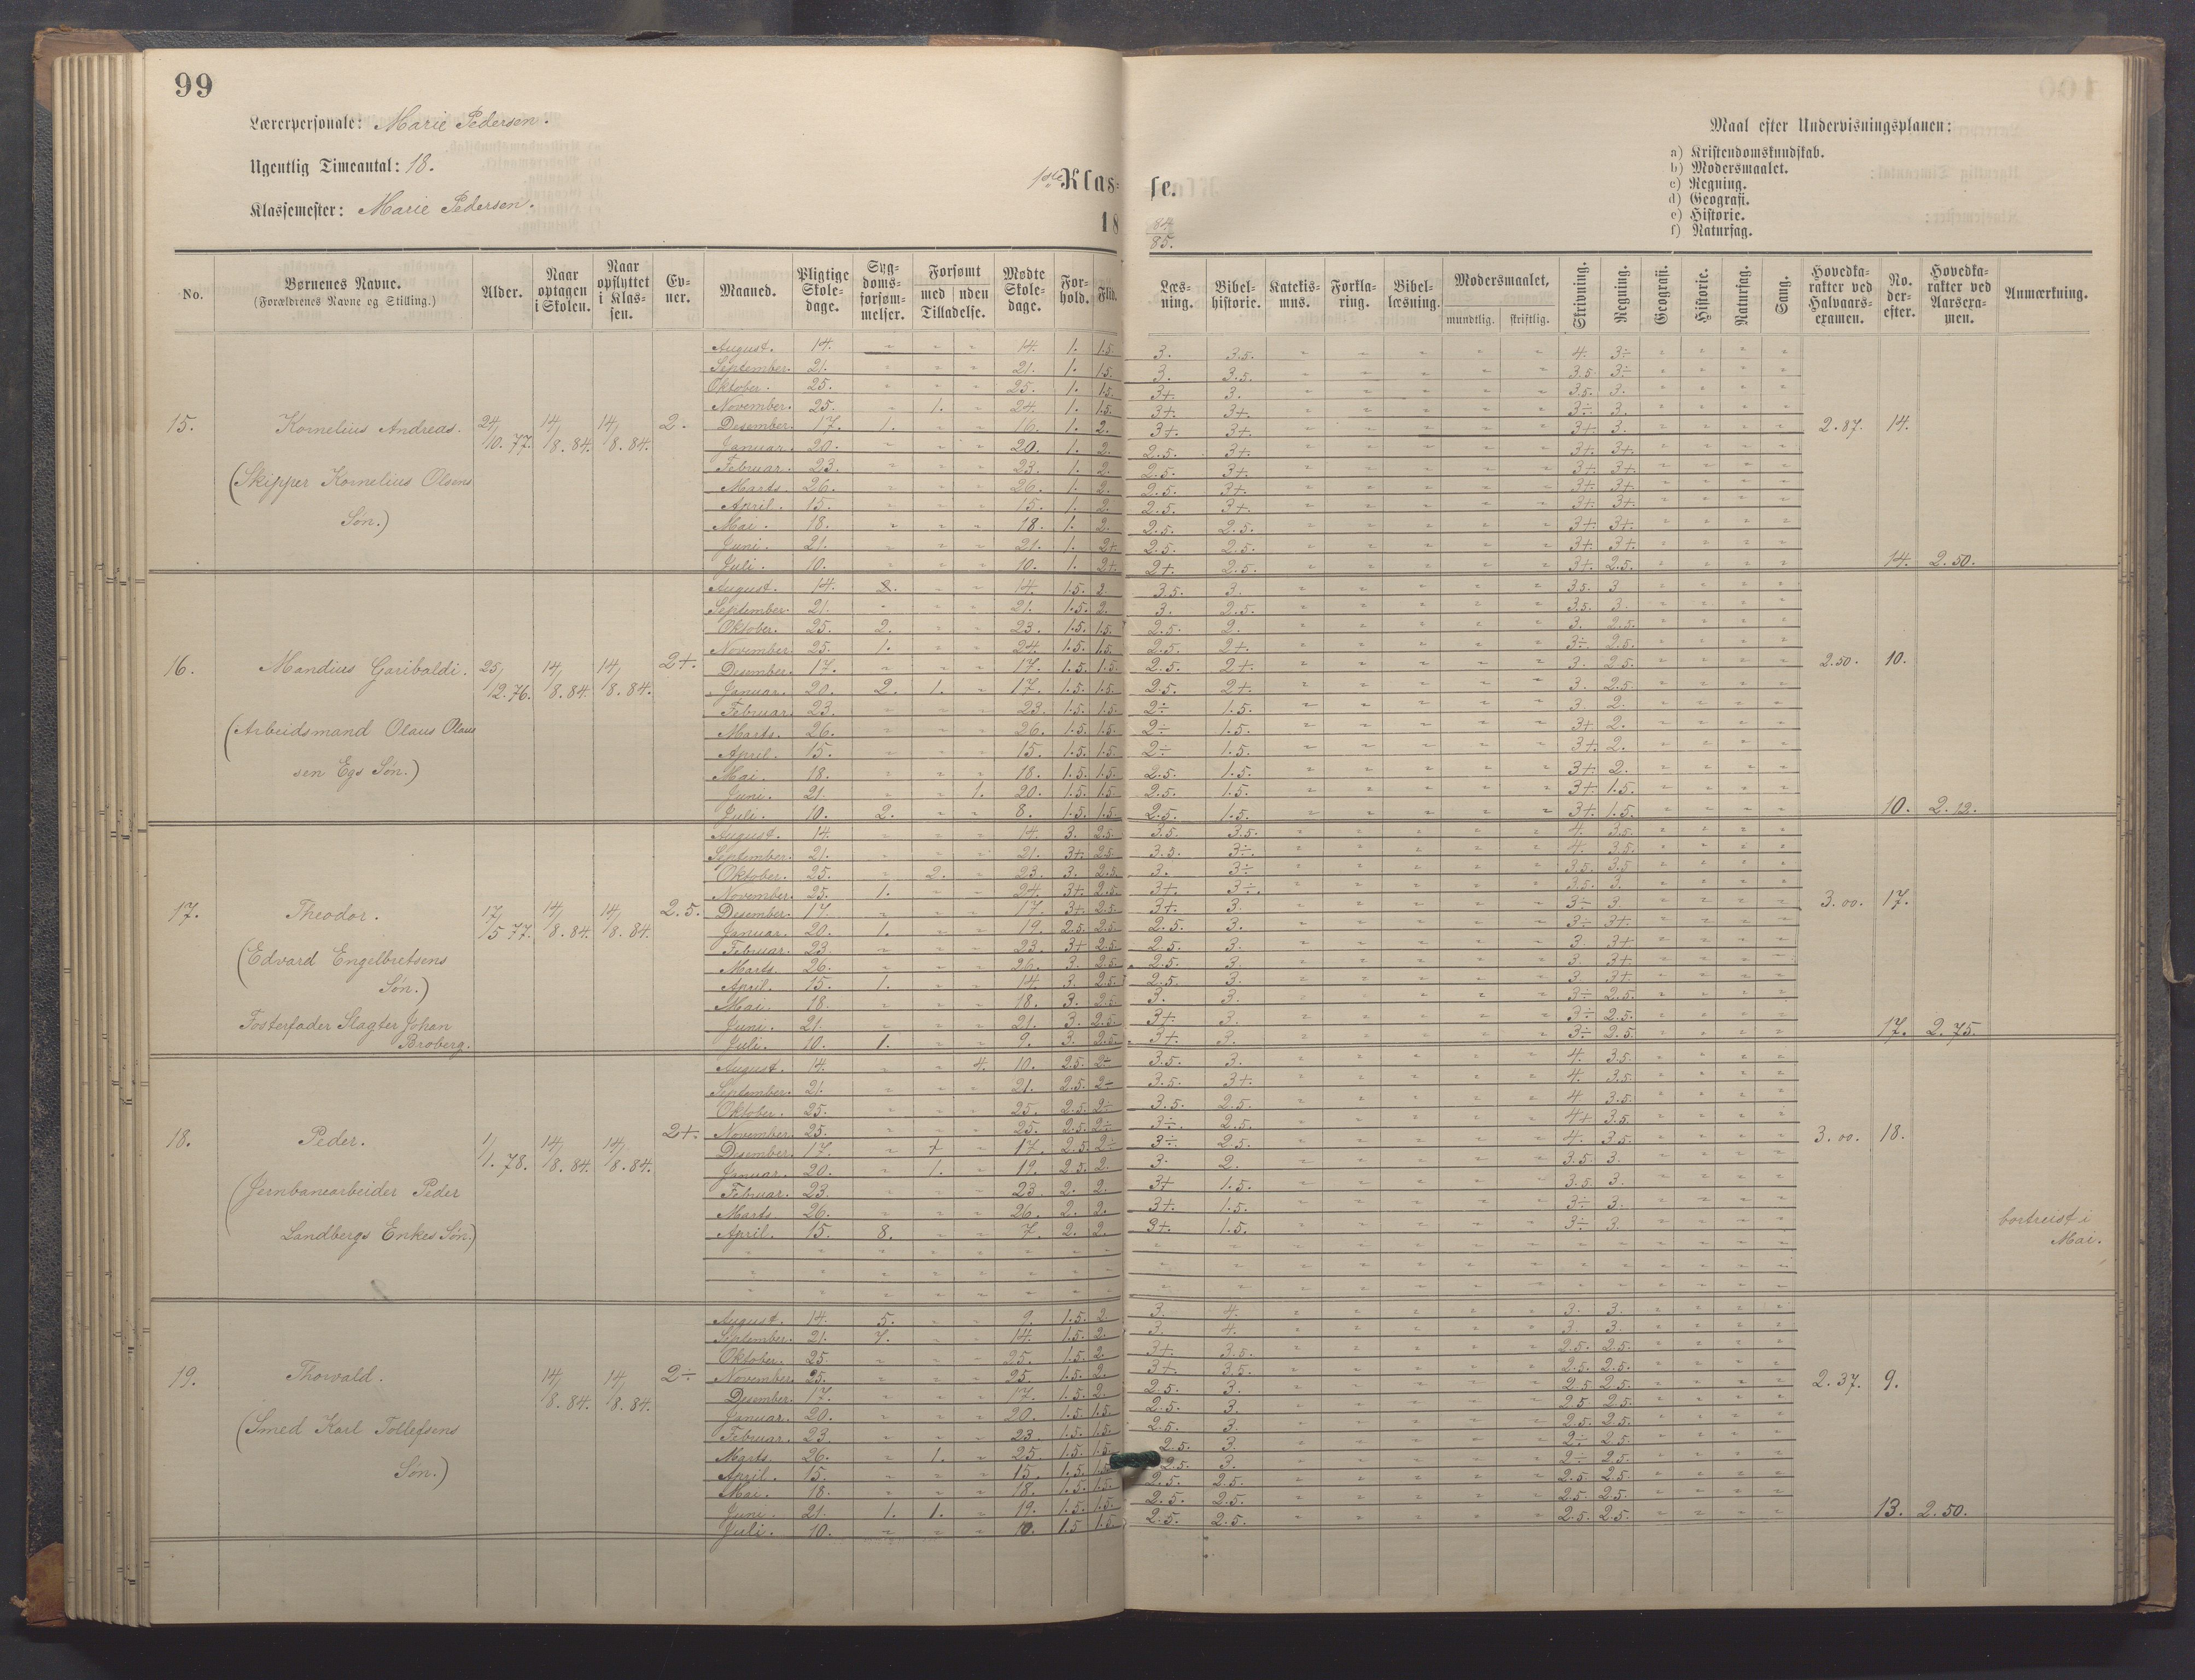 99
Lærerpersonale: Marie Pedersen.
Ugentlig Timeantal: 18.
Klassemester: Marie Pedersen.
1ste Klasse.
18 84/85.
Maal efter Undervisningsplanen:
a) Kristendomskundskab.
b) Modersmaalet.
c) Regning.
d) Geografi.
e) Historie.
f) Naturfag.
No. | Børnenes Navne. (Forældrenes Navne og Stilling.) | Alder. | Naar optagen i Skolen. | Naar opflyttet i Klassen. | Evner. | Maaned. | Pligtige Skoledage. | Sygdomsforsømmelser. | Forsømt med Tilladelse. | uden Tilladelse. | Mødte Skoledage. | Forhold. | Flid. | Læsning. | Bibelhistorie. | Katekismus. | Forklaring. | Bibellæsning. | Modersmaalet, mundtlig. | skriftlig. | Skrivning. | Regning. | Geografi. | Historie. | Naturfag. | Sang. | Hovedkarakter ved Halvaarsexamen. | No. derefter. | Hovedkarakter ved Aarsexamen. | Anmærkning.
15. Kornelius Andreas. 24/10. 77. 14/8. 84. 14/8. 84. 2. 2.87. 14.
(Skipper Kornelius Olsens
Søn.)
August. 14. " " " 14. 1. 1.5. 3. 3.5. 4. 3÷
September. 21. " " " 21. 1. 1.5. 3. 3.5. 3.5 3÷
Oktober. 25. " " " 25. 1. 1.5. 3+. 3. 3.5. 3.
November. 25. " 1. " 24. 1. 1.5. 3+. 3+. 3÷ 3.
Desember. 17. 1. " " 16. 1. 2. 3+. 3+. 3+. 3.
Januar. 20. " " " 20. 1. 2. 2.5. 3+. 3+. 3+.
Februar. 23. " " " 23. 1. 2. 2.5. 3+. 3+. 3+.
Marts. 26. " " " 26. 1. 2. 2.5. 3+. 3+. 3+.
April. 15. " " " 15. 1. 2. 2.5. 3+. 3+. 3+.
Mai. 18. " " " 18. 1. 2. 2.5. 2.5. 3+. 3+.
Juni. 21. " " " 21. 1. 2+ 2.5. 2.5. 3+. 3+.
Juli. 10. " " " 10. 1. 2+. 2+. 2.5. 3+. 2.5. 14. 2.50.
16. Mandius Garibaldi. 25/12. 76. 14/8. 84. 14/8. 84. 2+. 2.50. 10.
(Arbeidsmand Olaus Olaus
sen Egs Søn.)
August. 14. " " 14. 1.5. 2. 3.5. 3. 3.5. 3
September. 21. " " " 21. 1.5. 2. 3. 2.5. 3.5. 3.
Oktober. 25. 2. " " 23. 1.5. 1.5. 2.5. 2. 3. 2.5.
November. 25. 1. " " 24. 1.5. 1.5. 2.5. 2+. 3÷ 2.5.
Desember. 17. " " " 17. 1.5. 1.5. 2.5. 2+. 3. 2.5.
Januar. 20. 2. 1. " 17. 1.5. 1.5. 2.5. 2+. 3. 2.5.
Februar. 23. " " " 23. 1.5. 1.5. 2÷ 1.5. 3. 2.
Marts. 26. " " " 26. 1.5. 1.5. 2÷ 1.5. 3+ 2.
April. 15. " " " 15. 1.5. 1.5. 2÷ 1.5. 3+. 2.
Mai. 18. " " " 18. 1.5. 1.5. 2.5. 1.5. 3+ 2.
Juni. 21. " " 1. 20. 1.5. 1.5. 2.5. 1.5. 3+ 1.5.
Juli. 10. 2. " " 8. 1.5. 1.5. 2.5. 1.5. 3+ 1.5. 10. 2.12.
17. Theodor. 17/5 77. 14/8. 84. 14/8. 84. 2.5. 3.00. 17.
(Edvard Engelbretsens
Søn.)
Fosterfader Slagter Johan
Broberg.
August. 14. " " " 14. 3. 2.5. 3.5. 3.5. 4. 3.5.
September. 21. " " " 21. 3+. 2.5. 3.5. 3÷. 4. 3.5.
Oktober. 25. " 2. " 23. 3. 2.5. 3. 3÷ 3.5. 3.5
November. 25. 1. " " 24. 3+. 2.5. 3+. 3÷. 3.5. 3.
Desember. 17. " " " 17. 3+. 2.5. 3+. 3. 3÷ 3.
Januar. 20. 1. " " 19. 2.5. 2.5. 2.5. 3. 3÷ 3+.
Februar. 23 " " " 23. 3+ 2.5. 2.5. 3. 3. 3+
Marts. 26. " " " 26. 3. 2.5. 2.5. 3. 3. 3+
April. 15. 1. " " 14. 3. 2.5. 2.5. 3. 3. 3+.
Mai. 18. " " " 18. 3. 2.5. 3. 3. 3÷ 2.5.
Juni. 21. " " " 21. 3. 2.5. 3+ 3. 3÷ 2.5.
Juli. 10. 1. " " 9. 3. 2.5. 3+. 3. 3÷ 2.5. 17. 2.75.
18. Peder. 1/1. 78. 14/8. 84. 14/8. 84. 2+. 3.00. 18.
(Jernbanearbeider Peder
Landbergs Enkes Søn.)
August. 14. " " 4. 10. 2.5. 2÷ 3.5. 3. 4. 3.5.
September. 21. " " " 21. 2.5. 2÷ 3.5. 3+. 4. 3.5.
Oktober. 25. " " " 25. 2.5. 2÷ 3.5. 2.5. 4 3.5.
November. 25. " " " 25. 2.5. 2÷ 3÷. 2.5. 4+ 3.5.
Desember. 17. " " 17. 2.5. 2÷ 3÷. 2.5. 4. 3.5.
Januar. 20. " 1. " 19. 2.5. 2. 3. 2. 3.5. 3.
Februar. 23. " " " 23. 2. 2. 3+ 1.5. 3.5. 3.
Marts. 26. " " " 26. 2. 2. 3+. 1.5. 3÷ 3.
April. 15. 8. " " 7. 2. 2. 3+. 1.5. 3÷ 3.
bortreist i
Mai.
19. Thorvald. 14/8. 84. 14/8. 84. 2÷ 2.37. 9.
(Smed Karl Tollefsens
Søn.)
August. 14. 5. " " 9. 1.5. 2. 3. 4. 3. 3.
September. 21. 7. " " 14. 1.5. 2. 3. 4. 3. 3.
Oktober. 25. " " " 25. 1.5. 2. 3+. 3.5. 2.5. 2.5.
November. 25. " " " 25. 1.5. 2. 3+. 3.5. 2.5. 2.5.
Desember. 17. " " " 17. 1.5. 2. 2.5. 3. 2.5 2.5.
Januar. 20. " " " 20. 1.5. 1.5. 2.5. 3. 2.5 2.5.
Februar. 23. " " " 23. 1.5. 1.5. 2.5. 3. 2.5. 2.5.
Marts. 26. " 1. " 25. 1.5. 1.5. 2.5. 3. 2÷ 2.5.
April. 15. " " " 15. 1.5. 1.5 2.5. 3. 2÷ 2.5.
Mai. 18. " " " 18. 1.5. 1.5. 2.5. 2.5. 2.5. 2.5.
Juni. 21. 1. 1. " 19. 1.5. 1.5. 2.5. 2.5. 2.5. 2.5.
Juli. 10. " " " 10. 1.5 1.5 2.5. 2.5. 2.5. 2.5. 13. 2.50.